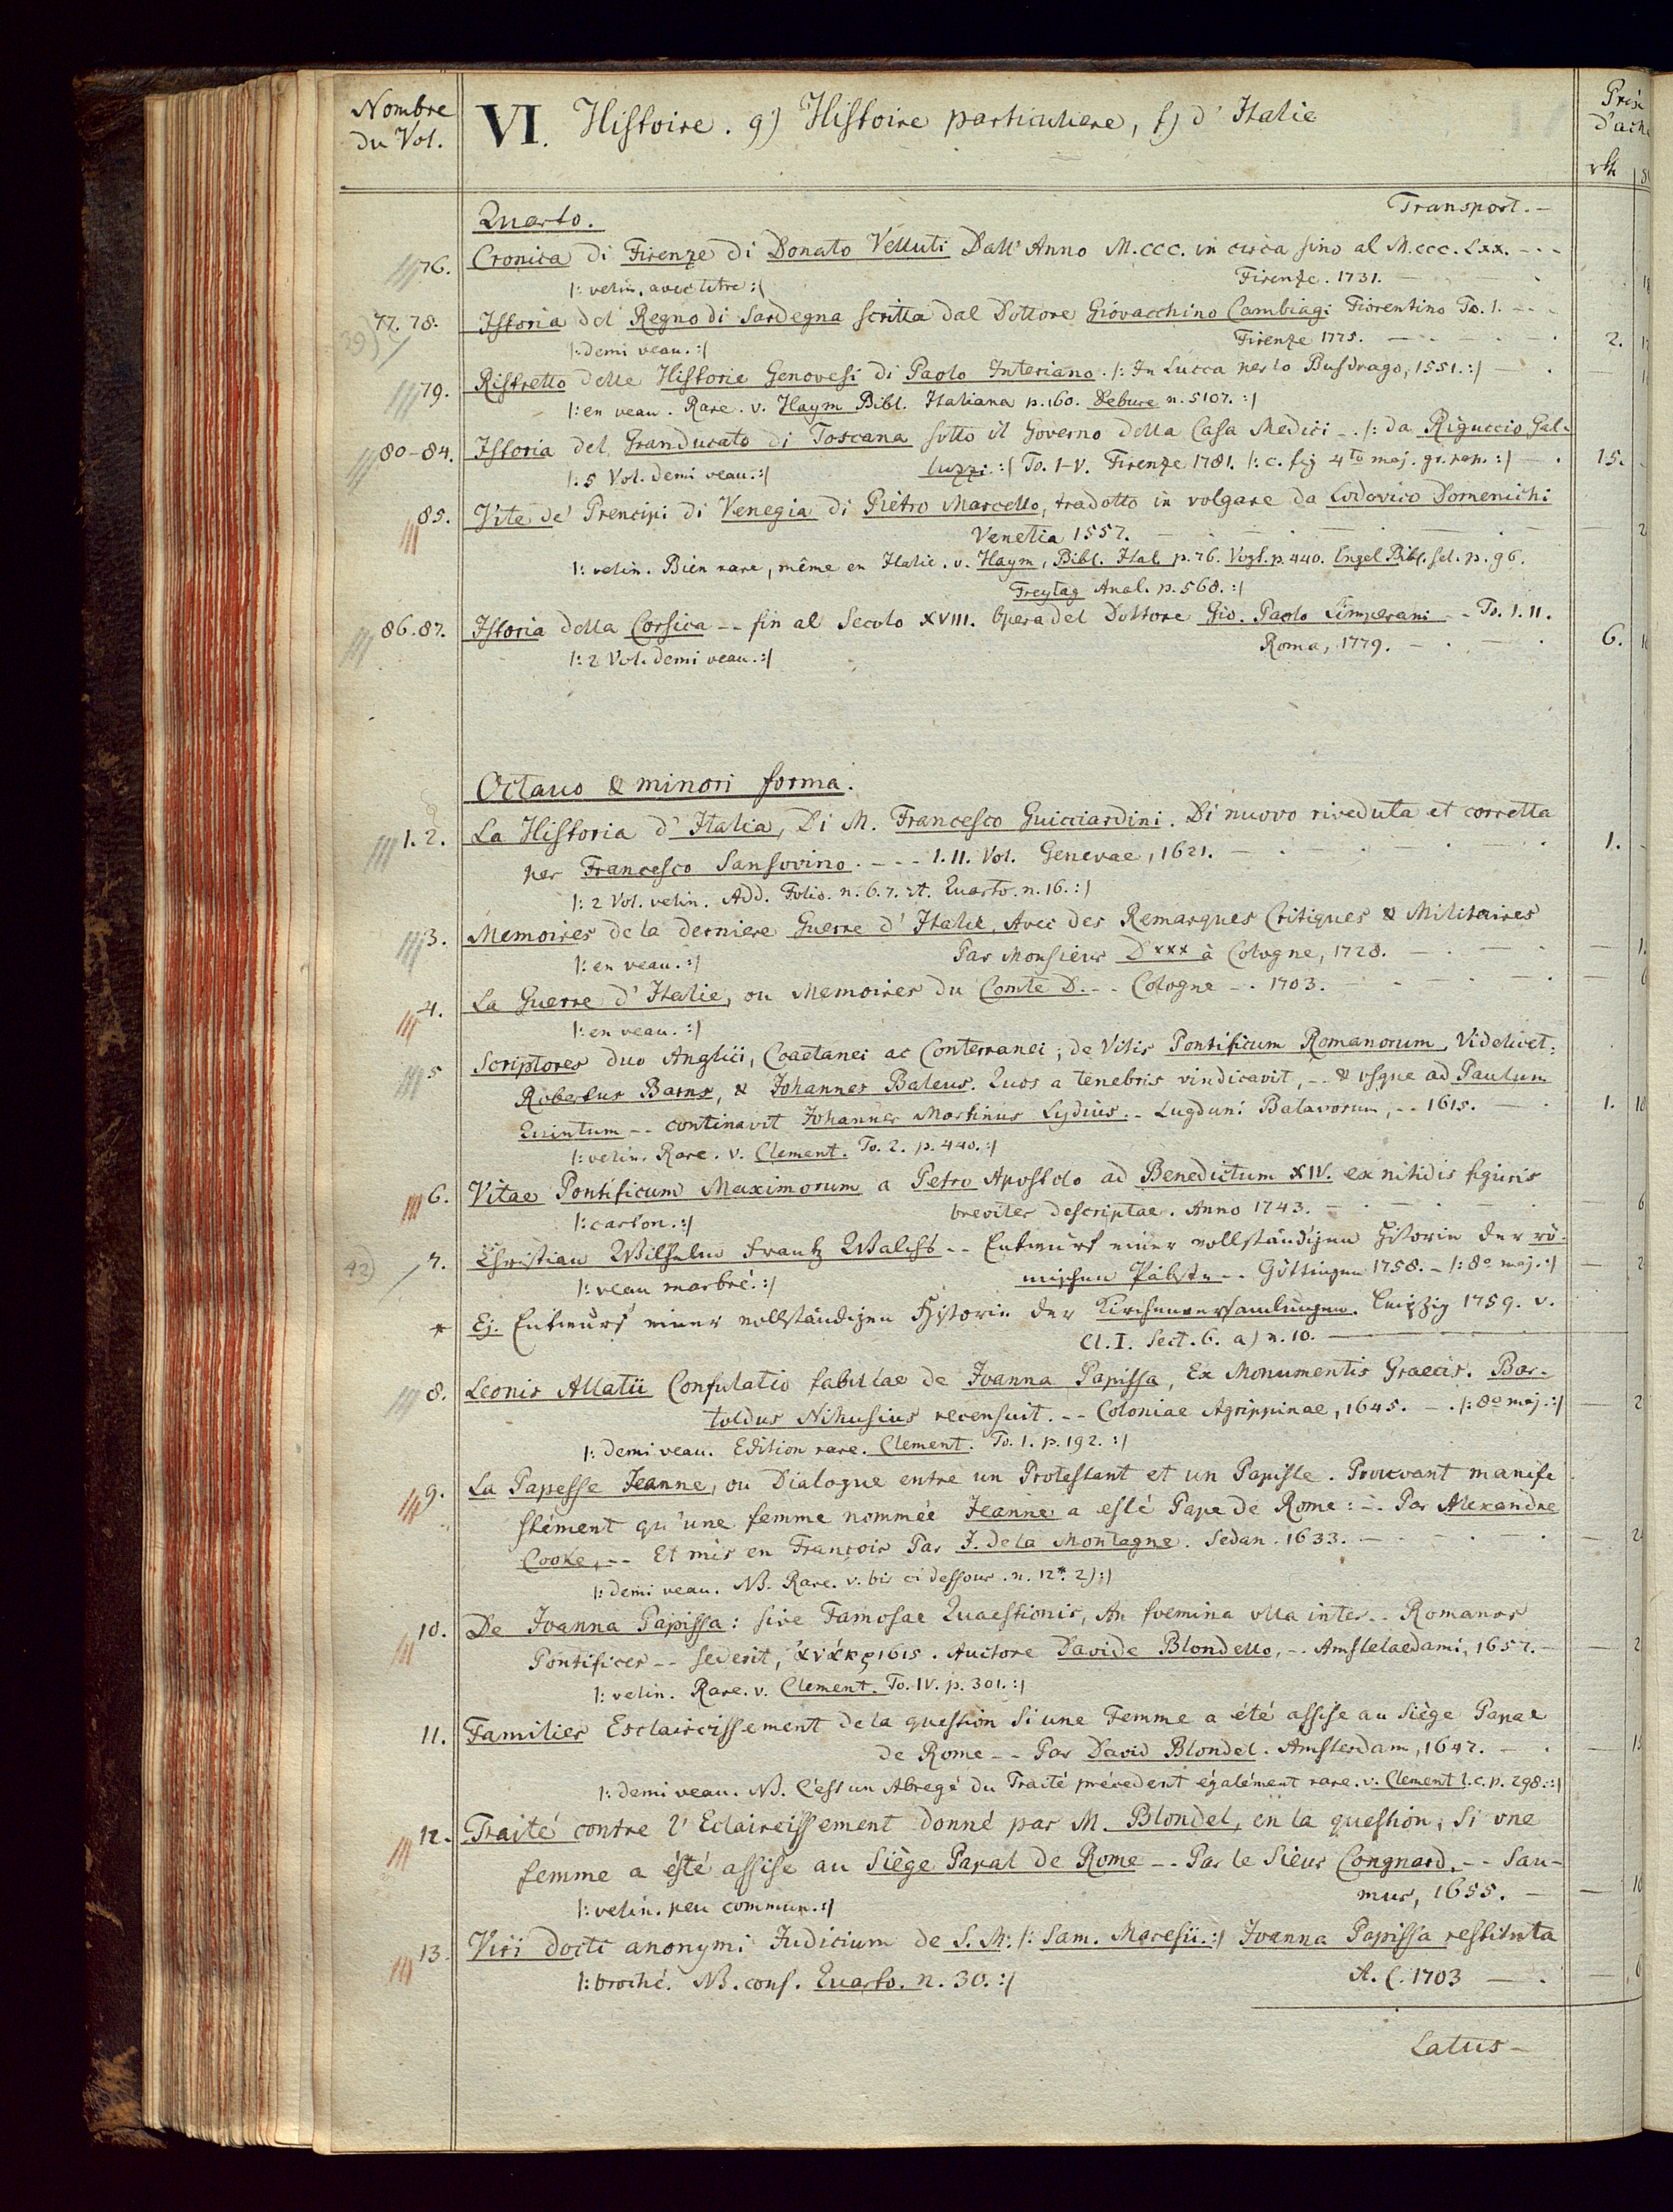 Nombre du Vol.
VI. Histoire. g) Histoire particuliere, f) d'Italie
Prix d'ach
rth
Quarto.
Transport. -
76. Cronica di Firenze di Donato Velluti Dall' Anno M.CCC. in circa sino al M.CCC.LXX. - - -
|: velin, avec titre :| Firenze. 1731.
77. 78. Istoria del Regno di Sardegna scritta dal Dottore Giovacchino Cambiagi Fiorentino To. 1. - - -
|: demi veau. :| Firenze 1775. 2.
79. Ristretto delle Historie Genovesi di Paolo Interiano. |: In Lucca per lo Busdrago, 1551. :|
|: en veau. Rare. v. Haym Bibl. Italiana p. 160. Debure n. 5107. :|
80-84. Istoria del Granducato di Toscana sotto il Governo della Casa Medici -. |: da Riguccio Gal-
|: 5 Vol. demi veau. :| luzzi :| To. I-V. Firenze 1781. |: c. fig 4to maj. gr. pap. :| 15.
85. Vite de' Prencipi di Venegia di Pietro Marcello, tradotto in volgare da Lodovico Domenichi
Venetia 1557.
|: velin. Bien rare, même en Italie. v. Haym, Bibl. Ital. p. 76. Vogt. p. 440. Engel Bibl. sel. p. 96.
Freytag Anal. p. 568. :|
86. 87. Istoria della Corsica - - fin al Secolo XVIII. Opera del Dottore Gio. Paolo Limperani - - To. I. II.
|: 2 Vol. demi veau. :| Roma, 1779. 6.
Octavo & minori forma.
1. 2. La Historia d'Italia, Di M. Francesco Guicciardini. Di nuovo riveduta et corretta
per Francesco Sansovino. - - - I. II. Vol. Genevae, 1621. 1.
|: 2 Vol. velin. Add. Folio. n. 6. 7. et. Quarto. n. 16. :|
3. Memoires de la derniere Guerre d'Italie, Avec des Remarques Critiques & Militaires
|: en veau. :| Par Monsieur D*** à Cologne, 1728.
4. La Guerre d'Italie, ou Memoires du Comte D. - - Cologne - . 1703.
|: en veau. :|
5 Scriptores duo Anglici, Coaetanei ac Conterranei; de Vitis Pontificum Romanorum, Videlicet:
Robertus Barns, & Johannes Baleus. Quos a tenebris vindicavit, - - & usque ad Paulum
Quintum - - continavit Johannes Martinus Lydius. - Lugduni Batavorum, - - 1615. 1.
|: velin. Rare. v. Clement. To. 2. p. 440. :|
6. Vitae Pontificum Maximorum a Petro Apostolo ad Benedictum XIV. ex nitidis figuris
|: carton. :| breviter descriptae. Anno 1743.
42) 7. Christian Wilhelm Frantz Walchs - - Entwurf einer vollständigen Historie der rö-
|: veau marbré. :| mischen Päbste - - Göttingen 1758. - |: 8o maj. :|
* Ej. Entwurf einer vollständigen Historie der Kirchenversamlungen. Leipzig 1759. v.
Cl. I. Sect. 6. a) n. 10.
8. Leonis Allatii Confutatio fabulae de Joanna Papissa, Ex Monumentis Graecis. Bar-
toldus Nihusius recensuit. - - Coloniae Agrippinae, 1645. - . |: 8o maj. :|
|: demi veau. Edition rare. Clement. To. 1. p. 192. :|
9. La Papesse Jeanne, ou Dialogue entre un Protestant et un Papiste. Prouvant manife
stément qu'une femme nommée Jeanne a esté Pape de Rome: -. Par Alexandre
Cooke, - - Et mis en François Par J. de la Montagne. Sedan. 1633.
|: demi veau. NB. Rare. v. bis ci dessous. n. 12*. 2) :|
10. De Joanna Papissa: sive Famosae Quaestionis, An foemina ulla inter - - Romanos
Pontifices - - sederit, 1615. Auctore Davide Blondello, - - Amstelaedami, 1657. -
|: velin. Rare. v. Clement. To. IV. p. 301. :|
11. Familier Esclaircissement de la question Si une Femme a été assise au Siège Papal
de Rome - - Par David Blondel. Amsterdam, 1647.
|: demi veau. NB. C'est un Abregé du Traité précedent également rare. v. Clement l. c. p. 298. :|
12. Traité contre l'Eclaircissement donné par M. Blondel, en la question, Si une
femme a ésté assise au Siège Papal de Rome - - Par le Sieur Congnard, - - Sau-
|: velin. peu commun. :| mur, 1655.
13. Viri docti anonymi Judicium de S. M. |: Sam. Maresii. :| Joanna Papissa restituta
|: broché. NB. conf. Quarto. n. 30. :| A. C. 1703
Latus -